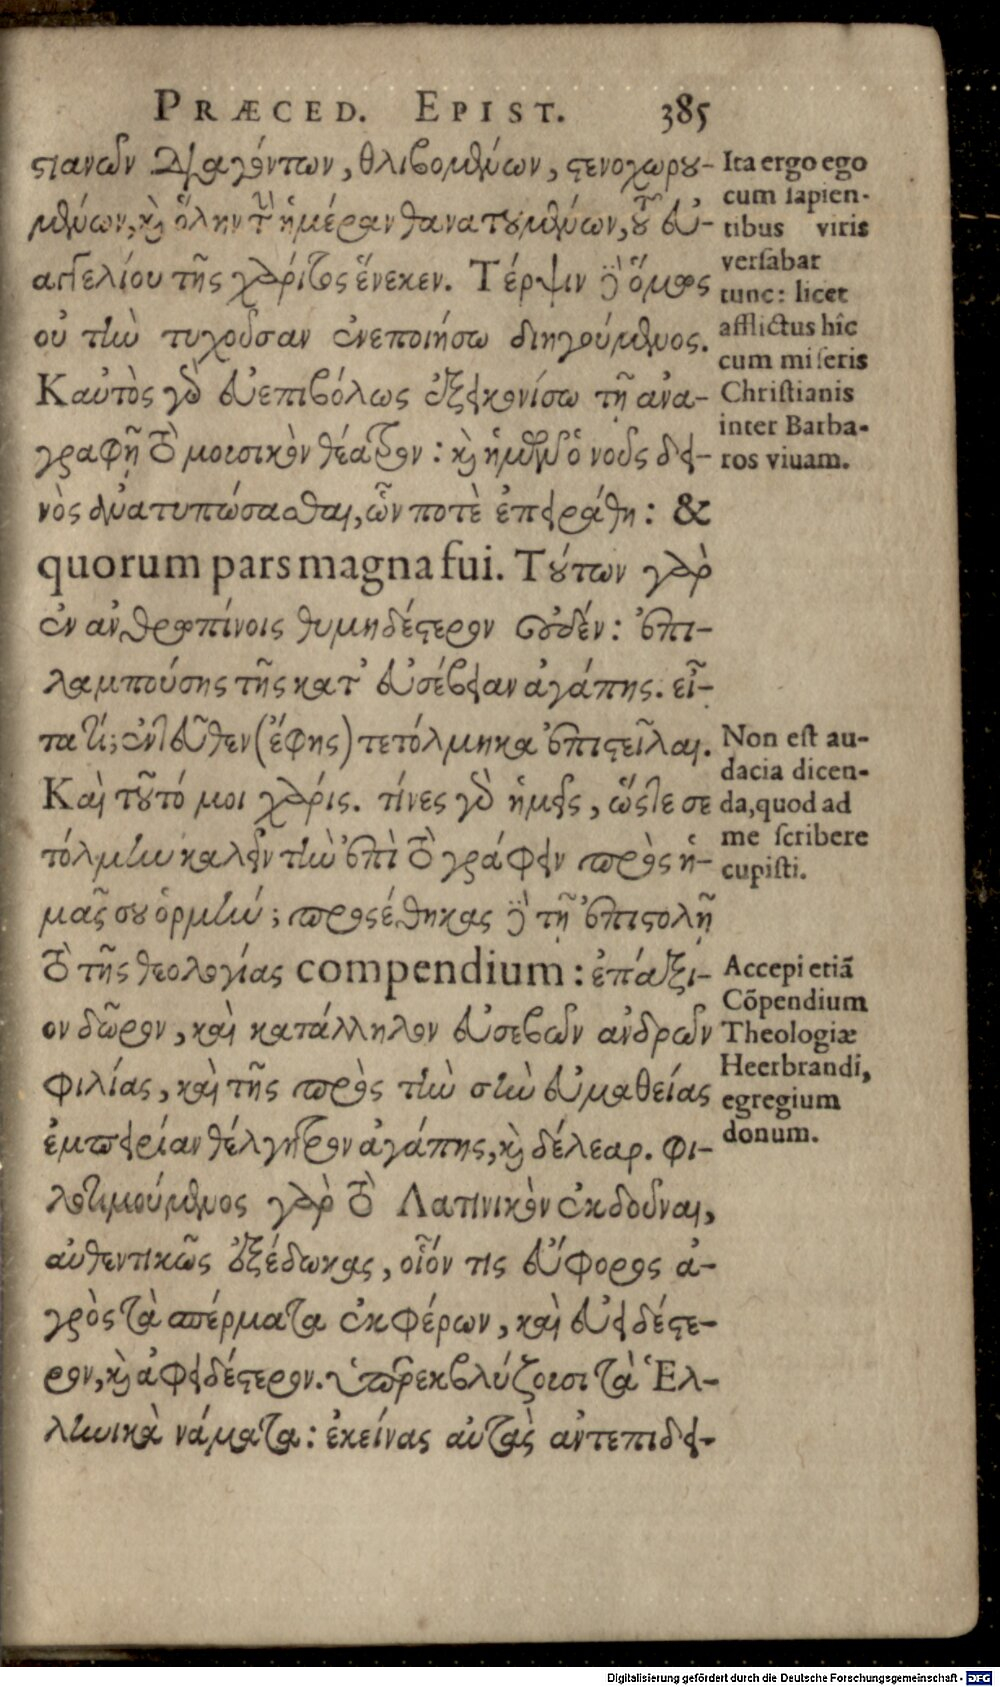 PRÆCED. EPIST. 385
στιανῶν διαγόντων, θλιβομένων, στενοχωρου-
μένων, καὶ ὅλην τὴν ἡμέραν θανατουμένων, τοῦ εὐ-
αγγελίου τῆς χάριτος ἕνεκεν. Τέρψιν δὲ ὅμως
οὐ τὴν τυχοῦσαν ἐνεποιήσω διηγούμενος.
Καὐτὸς γὰρ εὐεπιβόλως ἐξεικονίσω τῇ ἀνα-
γραφῇ τὸ μουσικὸν θέατρον: καὶ ἡμῶν ὁ νοῦς δει-
νὸς ἀνατυπώσασθαι, ὧν ποτὲ ἐπειράθη: &
quorum pars magna fui. Τούτων γὰρ
ἐν ἀνθρωπίνοις θυμηδέστερον οὐδέν: ἐπι-
λαμπούσης τῆς κατ᾽ εὐσέβειαν ἀγάπης. εἶ-
τα τί; ἐντεῦθεν (ἔφης) τετόλμηκα ἐπιστεῖλαι.
Καὶ τοῦτό μοι χάρις. τίνες γὰρ ἡμεῖς, ὥστε σε
τόλμην καλεῖν τὴν ἐπὶ τὸ γράφειν πρὸς ἡ-
μᾶς σου ὁρμήν; προσέθηκας δὲ τῇ ἐπιστολῇ
τὸ τῆς θεολογίας compendium: ἐπάξι-
ον δῶρον, καὶ κατάλληλον εὐσεβῶν ἀνδρῶν
φιλίας, καὶ τῆς πρὸς τὴν σὴν εὐμαθείας
ἐμπειρίαν θέλγητρον ἀγάπης, καὶ δέλεαρ. φι-
λοτιμούμενος γὰρ τὸ Λατινικὸν ἐκδοῦναι,
αὐθεντικῶς ἐξέδωκας, οἷόν τις εὔφορος ἀ-
γρὸς τὰ σπέρματα ἐκφέρων, καὶ εὐειδέστε-
ρον, καὶ ἀφειδέστερον. ὑπερεκβλύζουσι τὰ Ἑλ-
ληνικὰ νάματα: ἐκείνας αὐτὰς ἀντεπιδει-
Ita ergo ego
cum sapien-
tibus viris
versabar
tunc: licet
afflictus hîc
cum miseris
Christianis
inter Barba-
ros viuam.
Non est au-
dacia dicen-
da, quod ad
me scribere
cupisti.
Accepi etiã
Cõpendium
Theologiæ
Heerbrandi,
egregium
donum.
Digitalisierung gefördert durch die Deutsche Forschungsgemeinschaft - DFG